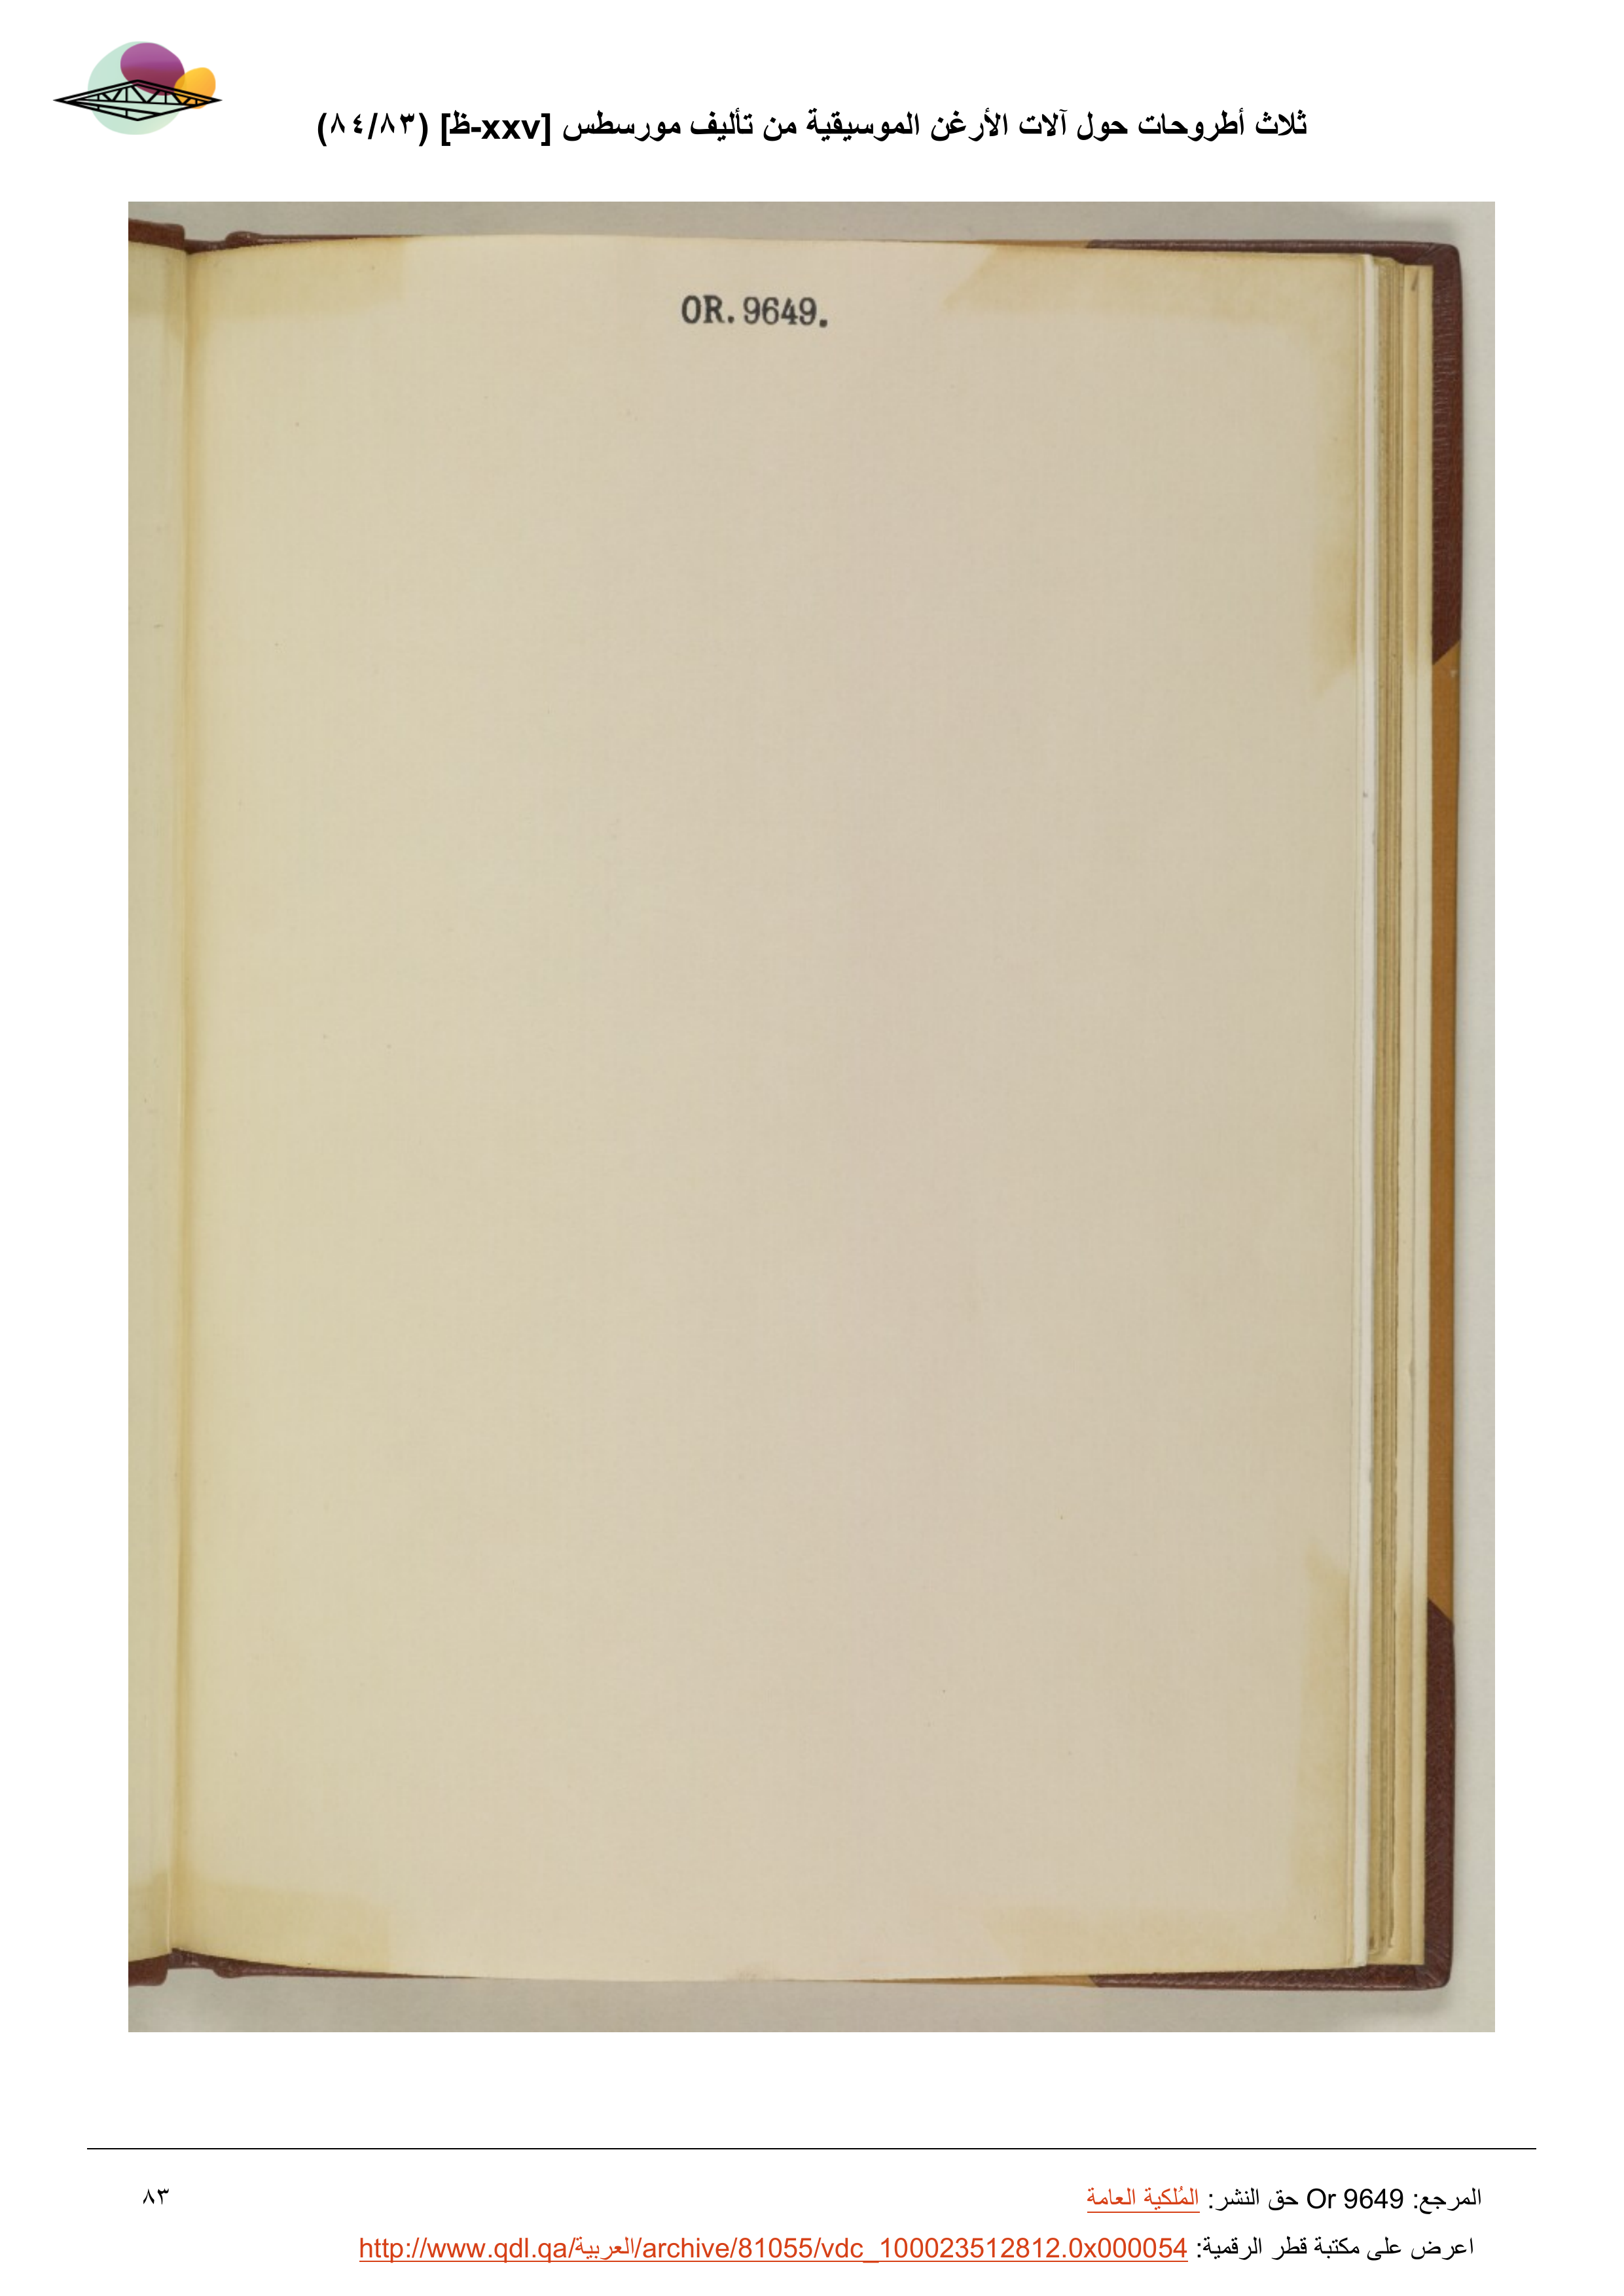 ثلاث أطروحات حول آلات الأرغن الموسيقية من تأليف مورسطس [xxv-ظ] (٨٣/٨٤)
OR. 9649.
المرجع: Or 9649 حق النشر: المُلكية العامة
٨٣
اعرض على مكتبة قطر الرقمية: http://www.qdl.qa/العربية/archive/81055/vdc_100023512812.0x000054